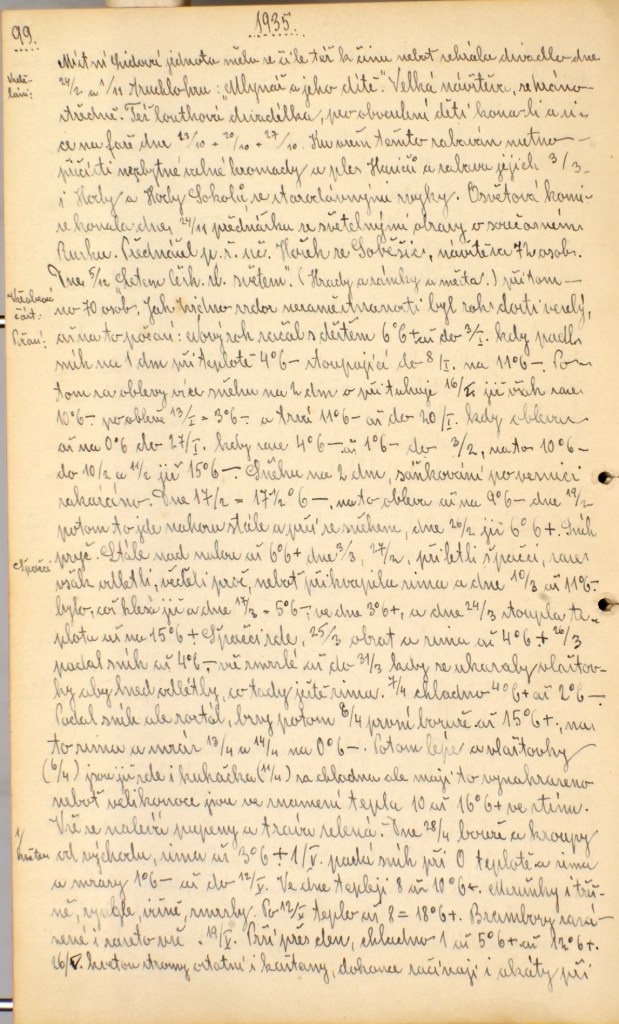 99.
1935.
Místní Lidová jednota měla se čile též k činu neboť sehrála divadlo dne
Vzdě-
lání:
24/2 a 1/11 truchlohru: „Mlynář a jeho dítě." Velká návštěva, sehráno
středně. Též loutková divadélka, po obveselení dětí konala i a u
ce na faře dne 13/10 + 20/10 + 27/10. Ku všem těmto zábavám nutno
přičísti nezbytné valné hromady a ples Hasičů a zábava jejich 3/3
i Hody a Hody Sokolů, se starodávnými zvyky. Osvětová komi-
se konala dne 24/11 přednášku se světelnými obrazy o současném
Rusku. Přednášel p. ř. uč. Horek ze Soběšic, návštěva 72 osob.
Dne 5/12 „Letem česk. sl. světem". (Hrady a zámky a města.) přítom-
Všeobecná
část:
no 70 osob. Jak vidno vzdor nezaměstnanosti byl rok dosti veselý,
Počasí:
až na to počasí: nový rok začal s deštěm 6°6+ až do 3/I. kdy padl
sníh na 1 dm při teplotě 4°6- stoupající do 8/I. na 11°6-. Po-
tom za oblevy více sněhu na 2 dm a přituhuje 16/I. již však zase
10°6- po oblevě 13/I = 3°6- a trvá 11°6- až do 20/I. kdy obleva
až na 0°6 do 27/I. kdy zase 4°6- až 1°6- do 3/2, na to 10°6-
do 10/2 a 11/2 již 15°6-. Sněhu na 2 dm, sáňkování po vesnici
zakázáno. Dne 17/2 = 17½°6-, na to obleva až na 9°6- dne 19/2
potom to jde nahoru stále a prší se sněhem, dne 26/2 již 6°6+. Sníh
pryč. Stále nad nulou až 6°6+ dne 3/3, 27/2, přiletli špačci, zase
Špačci
však odletli, věděli proč, neboť přikvapila zima a dne 10/3 až 11°6-
bylo, což klesá již a dne 17/3 = 5°6-, ve dne 3°6+, a dne 24/3 stoupla te-
plota až na 15°6+. Špačci zde, 25/3 obrat a zima až 4°6+ 26/3
padal sníh až 4°6- vše zmrzlé až do 31/3 kdy se ukázaly vlaštov-
ky aby hned odlétly, co tady ještě zima. 7/4 chladno 4°6+ až 2°6-
Padal sníh ale roztál, brzy potom 8/4 první bouře až 15°6+, na
to zima a mráz 13/4 a 14/4 na 0°6-. Potom lépe a vlaštovky
(6/4) jsou již zde i kukačka (11/4) za chladna ale mají to vynahrazeno
neboť velikonoce jsou ve znamení tepla 10 až 16°6+ ve stínu.
Vše se nalévá pupeny a tráva zelená. Dne 28/4 bouře a kroupy
1/
květen
od východu, zima až 3°6+ 1/V. padá sníh při 0 teplotě a zima
a mrazy 1°6- až do 12/V. Ve dne tepleji 8 až 10°6+. Meruňky i tře-
ně, zmrzly. Po 12/V teplo až 8 = 18°6+. Brambory zasá-
zené i zaseto vše. 19/V. Prší přes den, chladno 1 až 5°6+ až 12°6+.
26/V. kvetou stromy ostatní i kaštany, dokonce začínají i akáty při